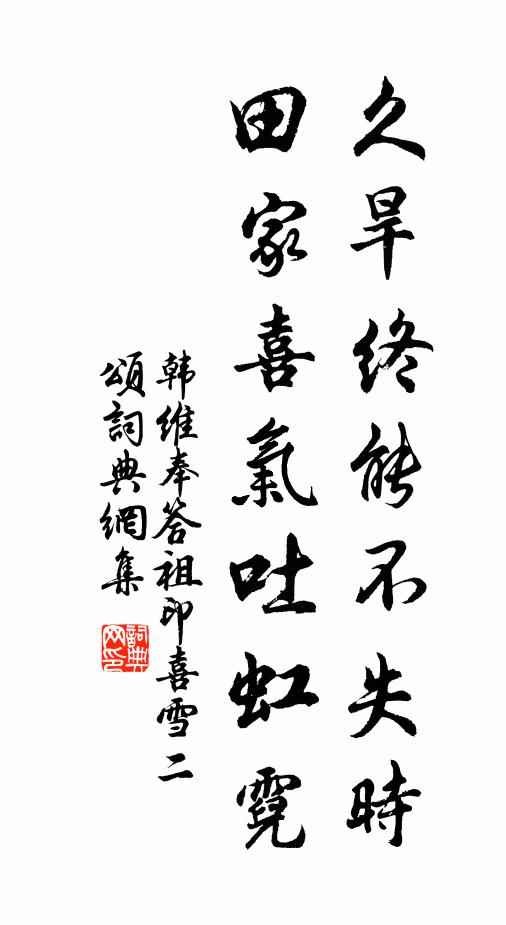 久旱终能不失時
田家喜氣吐虹霓
韩维奉答祖印喜雪二
頌詞典網集
詞典网印